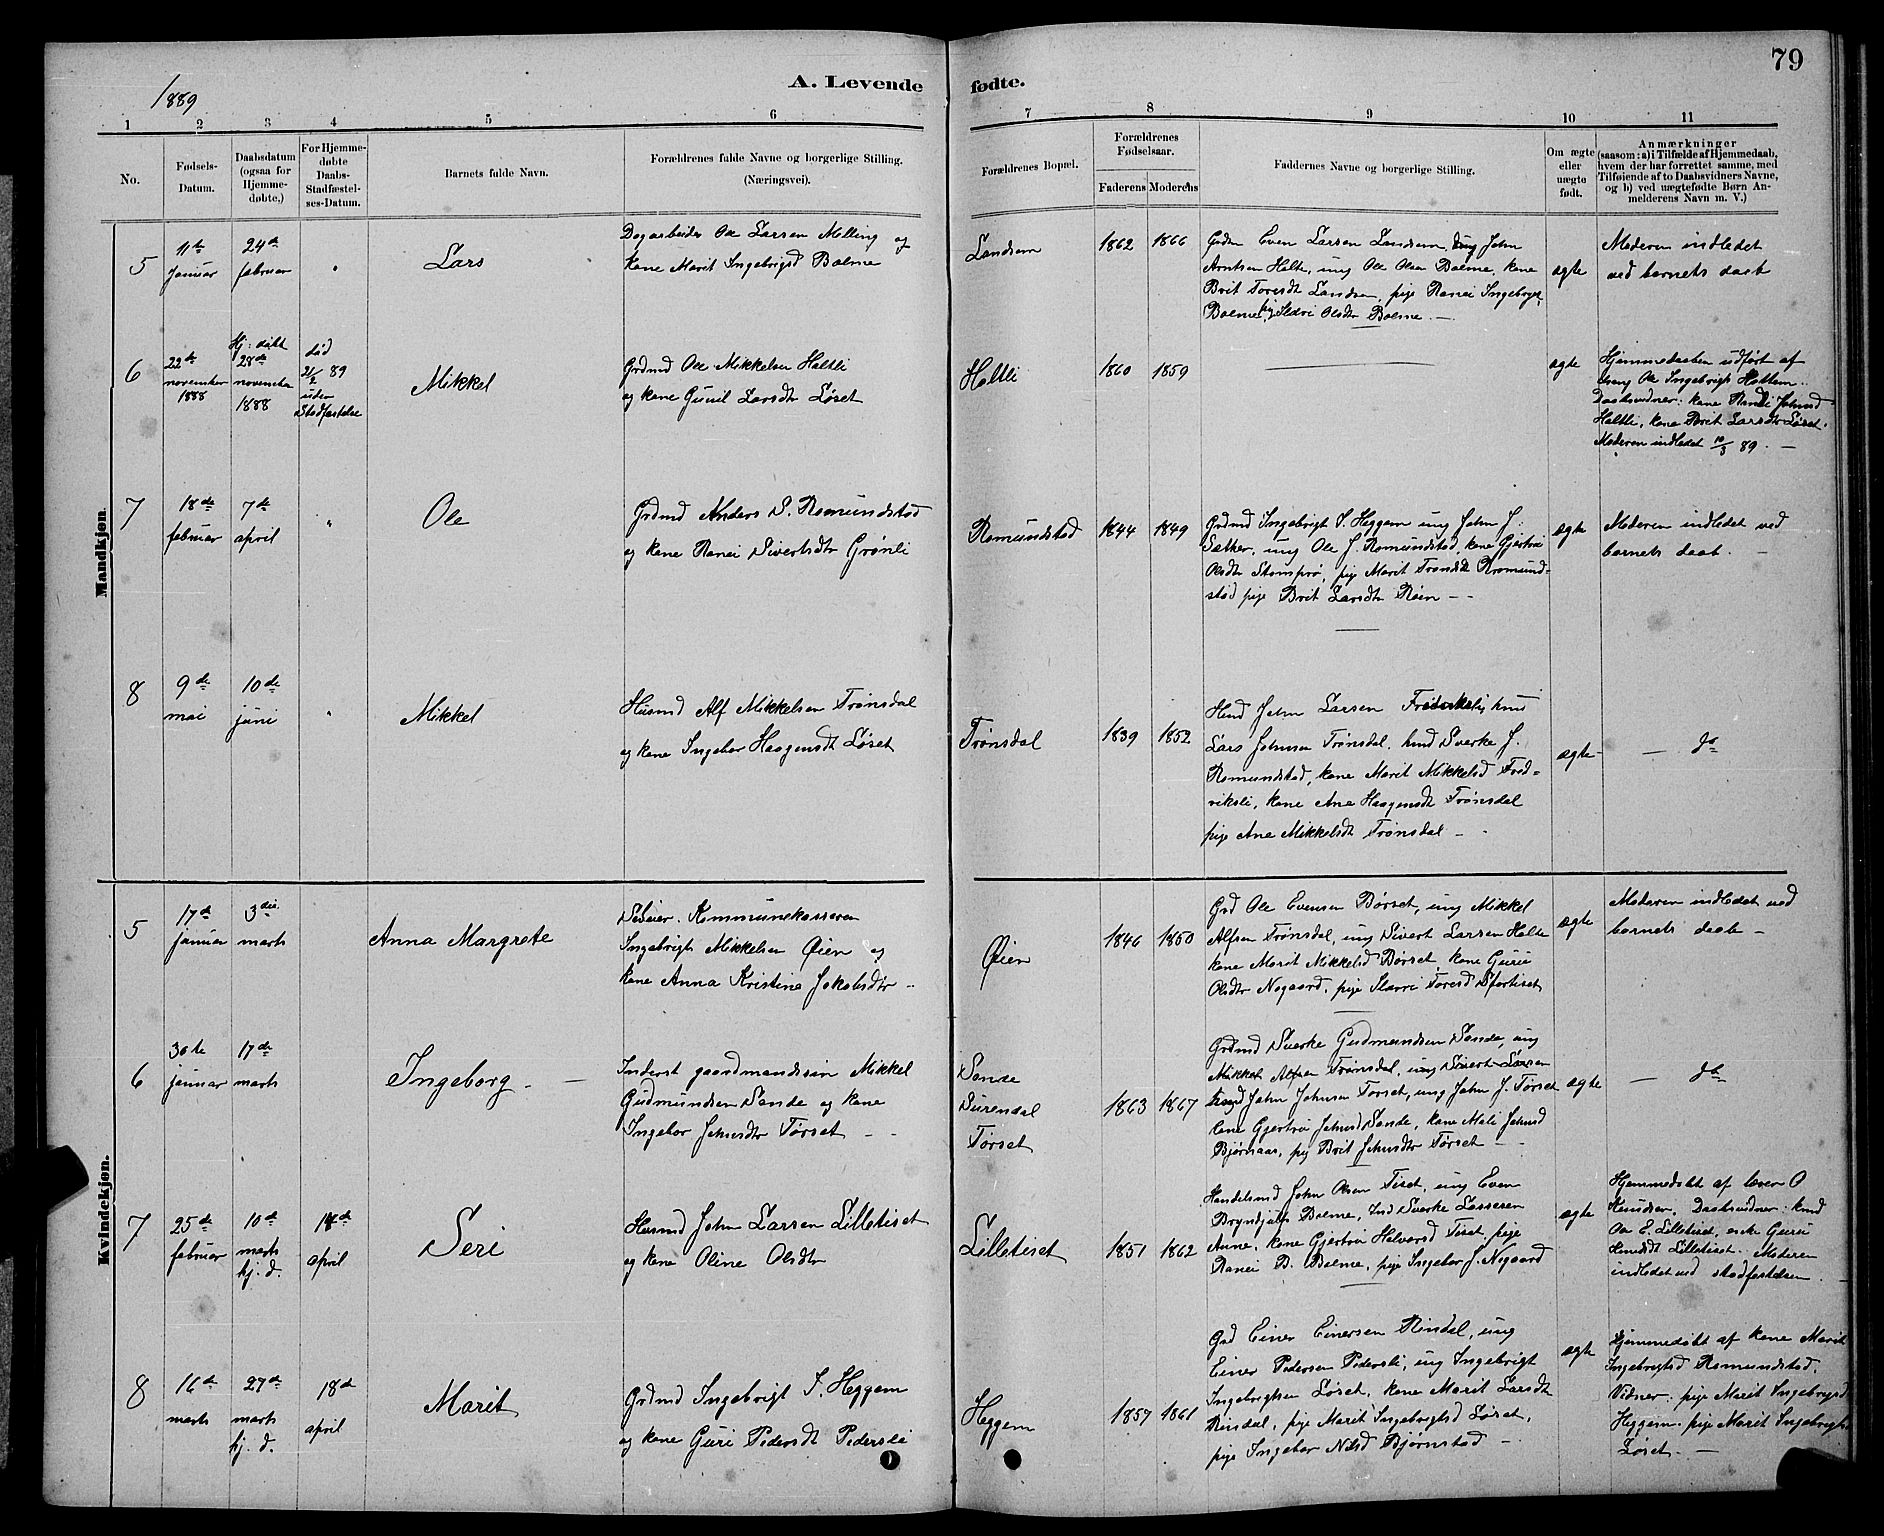 79
1889
A. Levende fødte.
1 2 3 4 5 6 7 8 9 10 11
No.
Fødsels-
Datum.
Daabsdatum
(ogsaa for
Hjemme-
døbte.)
For Hjemme-
døbte
Daabs-
Stadfæstel-
ses-Datum.
Barnets fulde Navn.
Forældrenes fulde Navne og borgerlige Stilling.
(Næringsvei).
Forældrenes Bopæl.
Forældrenes
Fødselsaar.
Faderens Moderens
Faddernes Navne og borgerlige Stilling.
Om ægte
eller
uægte
født.
Anmærkninger
(saasom: a) i Tilfælde af Hjemmedaab,
hvem der har forrettet samme, med
Tilføiende af to Daabsvidners Navne,
og b) ved uægtefødte Børn An-
melderens Navn m. V.)
Mandkjøn.
5
11te
januar
24de
februar
"
Lars
Dagarbeider Ole Larsen Melling og
kone Marit Ingebrigtsd Bolme
Landsem
1862 1866
Even Larsen Landsem, ung John
Arntsen Halte, ung Ole Olsen Bolme, kone
Brit Toresdt Landsem, pige Ranei Ingebrigts
Bolme, pig Sldri Olsdtr Bolme. —
ægte
Moderen indledet
ved barnets daab
6
22de
november
1888
Hj: døbt
28de
november
1888
død
21/2 89
uden
Stadfæstelse
Mikkel
Grdmd Ole Mikkelsen Haltli
og kone Guril Larsdtr Løset
Haltli
1860 1859
ægte
Hjemmedaaben udført af
Ole Ingebrigts Holtem.
Daabsvidner: kone Randi Johnsd
Haltli, kone Brit Larsdtr Løset.
Moderen indledet 10/3 89. —
7
18de
februar
7de
april
"
Ole
Grdmd Anders S. Romundstad
og kone Ranei Sivertsdtr Grønli
Romundstad
1844 1849
Grdmd Ingebrigt S. Heggem ung John J.
Sæther, ung Ole J. Romundstad, kone Gjertru
Olsdtr Stomprø, pige Marit Trondsdt Romund-
stad pige Brit Larsdtr Røen — —
ægte
Moderen indledet ved
barnets daab. —
8
9de
mai
10de
juni
"
Mikkel
Husmd Alf Mikkelsen Trønsdal
og kone Ingebor Haagensdt Løset
Trønsdal
1839 1852
Husd John Larsen Fredriksli, husd
Lars Johnsen Trønsdal, husd Sverke J.
Romundstad, kone Marit Mikkelsd Fred-
riksli, kone Ane Haagensdt Trønsdal
pige Ane Mikkelsdt Trønsdal —
ægte
— do
Kvindekjøn.
5
17de
januar
3die
marts
Anna Margrete
Selveier. Kommunekasserer
Ingebrigt Mikkelsen Øien og
kone Anna Kristine Jakobsdtr
Øien
1846 1850
Grd Ole Evensen Børset, ung Mikkel
Alfsen Trønsdal, ung Sivert Larsen Halte
kone Marit Mikkelsd Børset kone Guru
Olsdtr Nogaard, pige Toresd
ægte
Moderen indledet ved
barnets daab —
6
30te
januar
17de
marts
Ingeborg. —
Inderst gaardmandssøn Mikkel
Gudmundsen Sande og kone
Ingebor Johnsdtr Tørset —
Sande
Surendal
Tørset
1863 1867
Grdmd Sverke Gudmundsen Sande, ung
Mikkel Alfsen Trønsdal, ung Sivert Larsen
John Johnsen Torset, ung John J. Tørset
kone Gjertru Johnsd Sande, kone Mali Johnsd
Bjørnaas, pig Brit Johnsdtr Tørset —
ægte
— do
7
25de
februar
10de
marts
hj. d.
14de
april
Seri
Husmd John Larsen Lilletiset
og kone Oline Olsdtr
Lilletiset
1851 1862
Handelsmd John Olsen Tiset, ung Even
Bryndjulfs Bolme, Ind Sverke Lassesen
Anne, kone Gjertru Halvorsd Tiset, pige
Ranei B. Bolme, pige Ingebor J. Nogaard
ægte
Hjemmedøbt af lærer O
Knudsen. Daabsvidner:
Ole E. Lilletiset, enke Guru
Knudsdt Lilletiset. Moderen
indledet ved stadfæstelsen. —
8
16de
marts
27de
marts
hj. d.
18de
april
Marit
Grdmd Ingebrigt S. Heggem
og kone Guri Pedersdt Pedersli
Heggem
1857 1861
Grd Einer Einersen Rindal, ung
Einer Pedersen Pedersli, ung Ingebrigt
Ingebrigtsen Løset, kone Marit Larsdt
Rindal, pige Marit Ingebrigtsd Løset,
pige Ingebor Nilsd Bjørnstad —
ægte
Hjemmedøbt af kone Marit
Ingebrigtsd Romundstad.
Vidner: pige Marit Ingebrigtsd
Heggem. pige Marit Ingebrigtsd
Løset. —